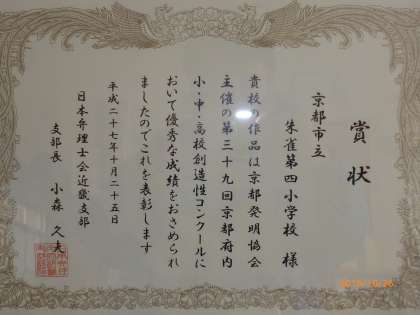 賞状
京都市立
朱雀第四小学校 様
貴校の作品は京都発明協会
主催の第三十九回京都府内
小・中・高校創造性コンクールに
おいて優秀な成績をおさめられ
ましたのでこれを表彰します
平成二十七年十月二十五日
日本弁理士会近畿支部
支部長 小森 久夫